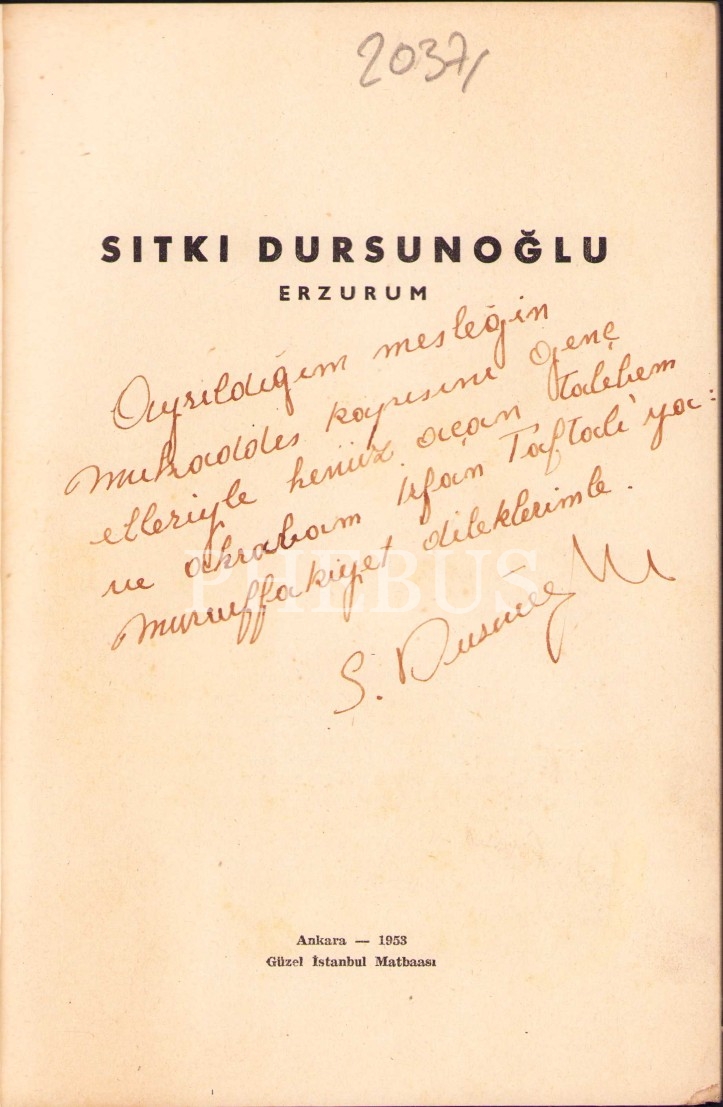 2037,
SITKI DURSUNOĞLU
ERZURUM
Ayrıldığım mesleğin
mukaddes kapısını genç
elleriyle henüz açan talebem
ve akrabam İrfan Taftalı'ya:
muvaffakiyet dileklerimle.
PHEBUS
S. Dursunoğlu
Ankara — 1953
Güzel İstanbul Matbaası